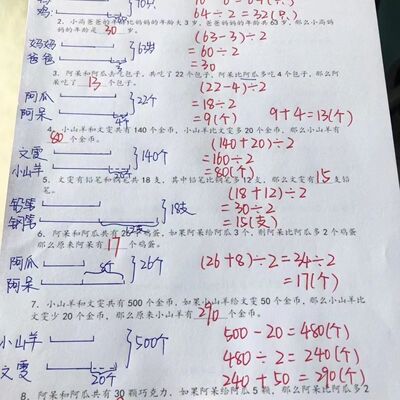 妈妈:
64÷2=32(岁)
2. 小高爸爸的年龄比妈妈的年龄大3岁,爸爸妈妈的年龄共63岁,那么小高妈妈的年龄是 30 岁.
妈妈
爸爸
63岁
3岁
(63-3)÷2
=60÷2
=30
3. 阿呆和阿瓜去吃包子,共吃了22个包子,阿呆比阿瓜多吃4个包子,那么阿呆吃了 13 个包子.
阿瓜
阿呆
22个
4个
(22-4)÷2
=18÷2
=9(个)
9+4=13(个)
4. 小山羊和文雯共有140个金币,小山羊比文雯多20个金币,那么小山羊有
80 个金币.
文雯
小山羊
140个
20个
(140+20)÷2
=160÷2
=80(个)
5. 文雯有铅笔和钢笔共18支,其中铅笔比钢笔多12支,那么文雯有 15 支铅笔.
铅笔
钢笔
18支
12支
(18+12)÷2
=30÷2
=15(支)
6. 阿呆和阿瓜共有26个鸡蛋,如果阿呆给阿瓜3个,则阿呆比阿瓜多2个鸡蛋
那么原来阿呆有 17 个鸡蛋.
阿瓜
阿呆
8个
26个
(26+8)÷2=34÷2
=17(个)
7. 小山羊和文雯共有500个金币,如果小山羊给文雯50个金币,那么小山羊比
文雯少20个金币,那么原来小山羊有 290 个金币.
小山羊
文雯
500个
20个
500-20=480(个)
480÷2=240(个)
240+50=290(个)
8. 阿呆和阿瓜共有30颗巧克力,如果阿呆给阿瓜5颗,那么阿呆比阿瓜多2